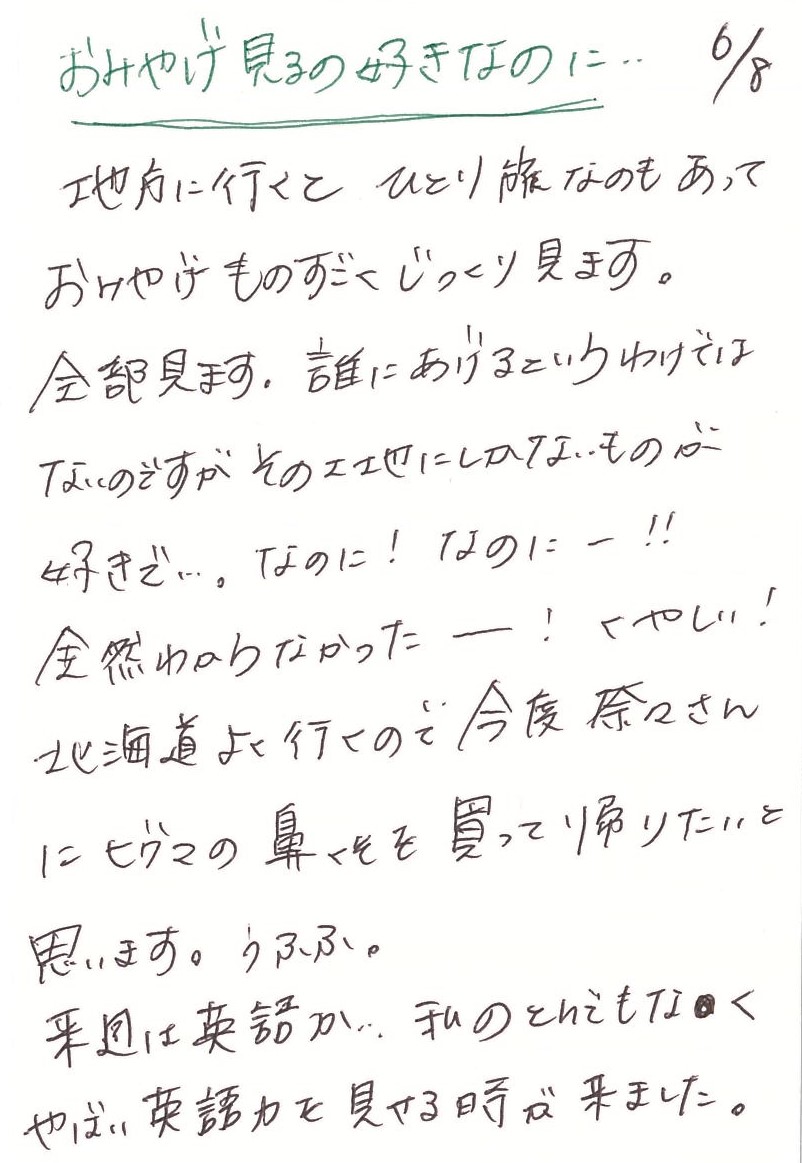 おみやげ見るの好きなのに…
6/8
地方に行くと ひとり旅なのもあって
おみやげものすごくじっくり見ます。
全部見ます。誰にあげるというわけでは
ないのですが その土地にしかないものが
好きで…。なのに! なのにー!!
全然わからなかったー! くやしい!
北海道よく行くので今度 奈々さん
にヒグマの鼻くそを買って帰りたいと
思います。うふふ。
来週は英語か… 私のとんでもなく
やばい英語力を見せる時が来ました。